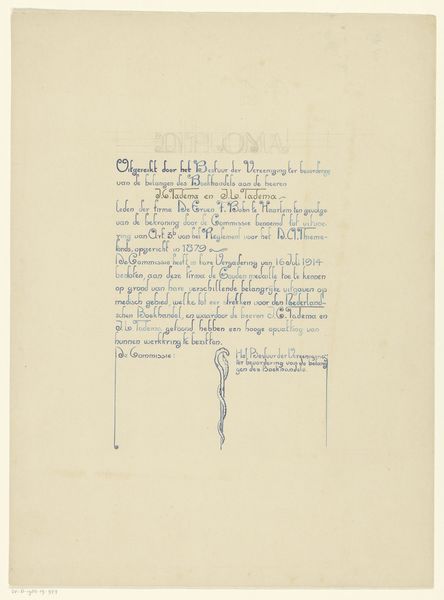 Uitgereikt door het Bestuur der Vereeniging ter bevordering
van de belangen des Boekhandels aan de heeren
K. Tadema en J.L. Tadema
leden der firma De Erven F. Bohn te Haarlem ten gevolge
van de bekroning door de Commissie benoemd tot uitvoe-
ring van Art. 5 van het Reglement voor het D.A. Thieme-
fonds, opgericht in 1879
De Commissie heeft in hare Vergadering van 16 Juli 1914
besloten, aan deze firma de Gouden medaille toe te kennen
op grond van hare verschillende belangrijke uitgaven op
medisch gebied, welke tot eer strekken voor den Nederland-
schen Boekhandel, en waardoor de heeren K. Tadema en
J.L. Tadema, getoond hebben een hooge opvatting van
hunnen werkkring te bezitten.
De Commissie:
Het Bestuur der Vereeniging
ter bevordering van de belan-
gen des Boekhandels.